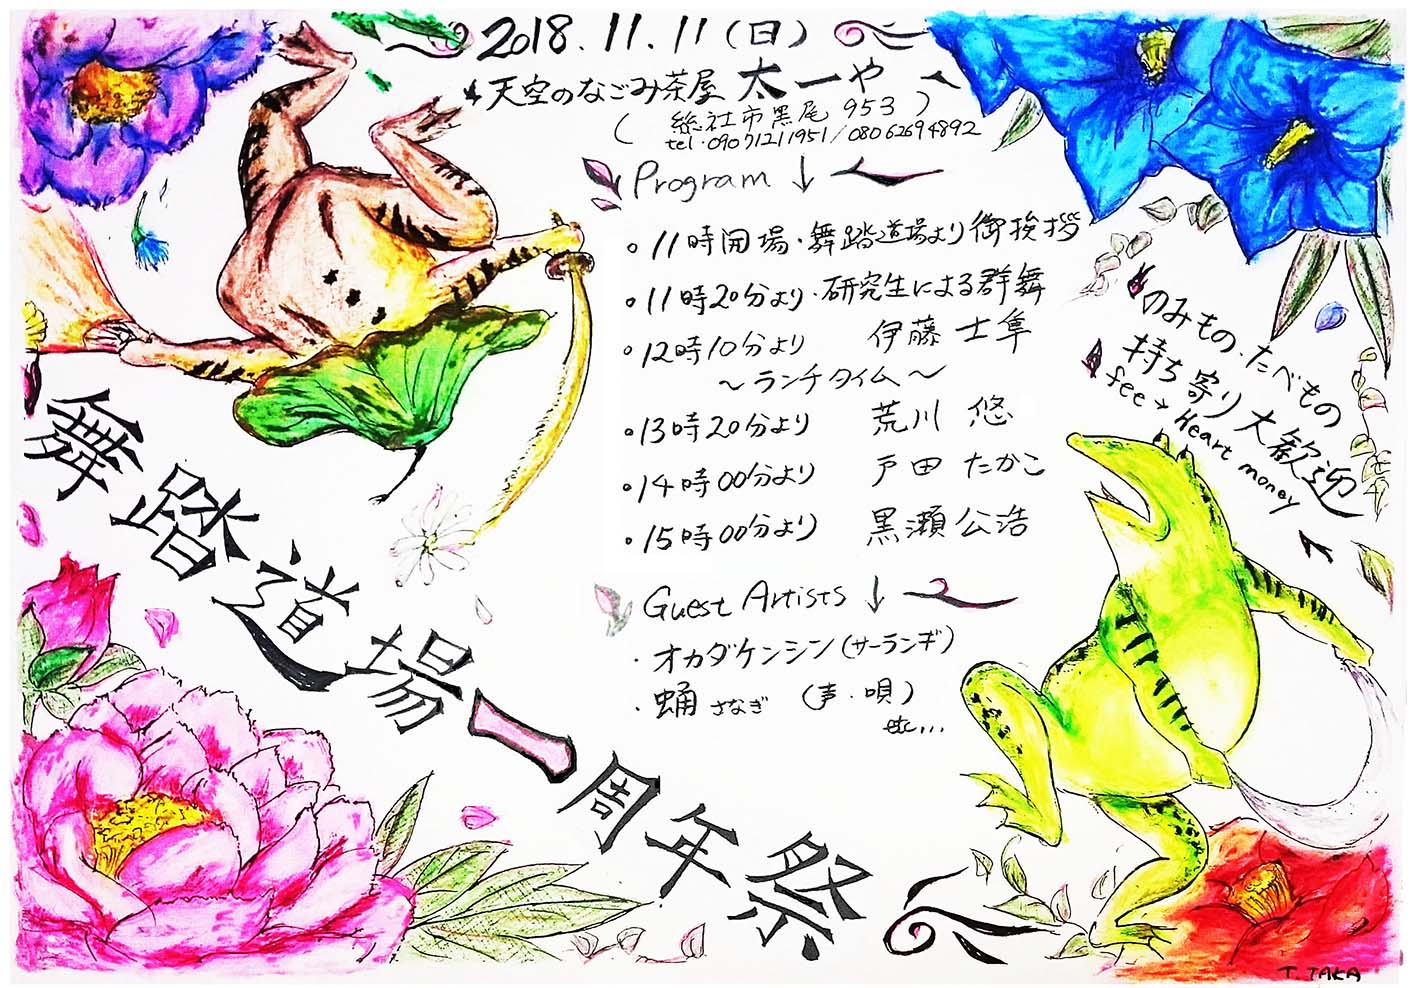 2018.11.11(日)
天空のなごみ茶屋 太一や
(総社市黒尾 953)
tel.09071211951/08062694892
Program ↓
。11時開場・舞踏道場より御挨拶
。11時20分より・研究生による群舞
。12時10分より 伊藤 士隼
～ランチタイム～
。13時20分より 荒川 悠
。14時00分より 戸田 たかこ
。15時00分より 黒瀬公浩
Guest Artists ↓
・オカダケンシン(サーランギ)
・蛹 さなぎ (声・唄)
etc...
のみもの、たべもの
持ち寄り大歓迎
fee → Heart money
舞踏道場一周年祭
T.TAKA